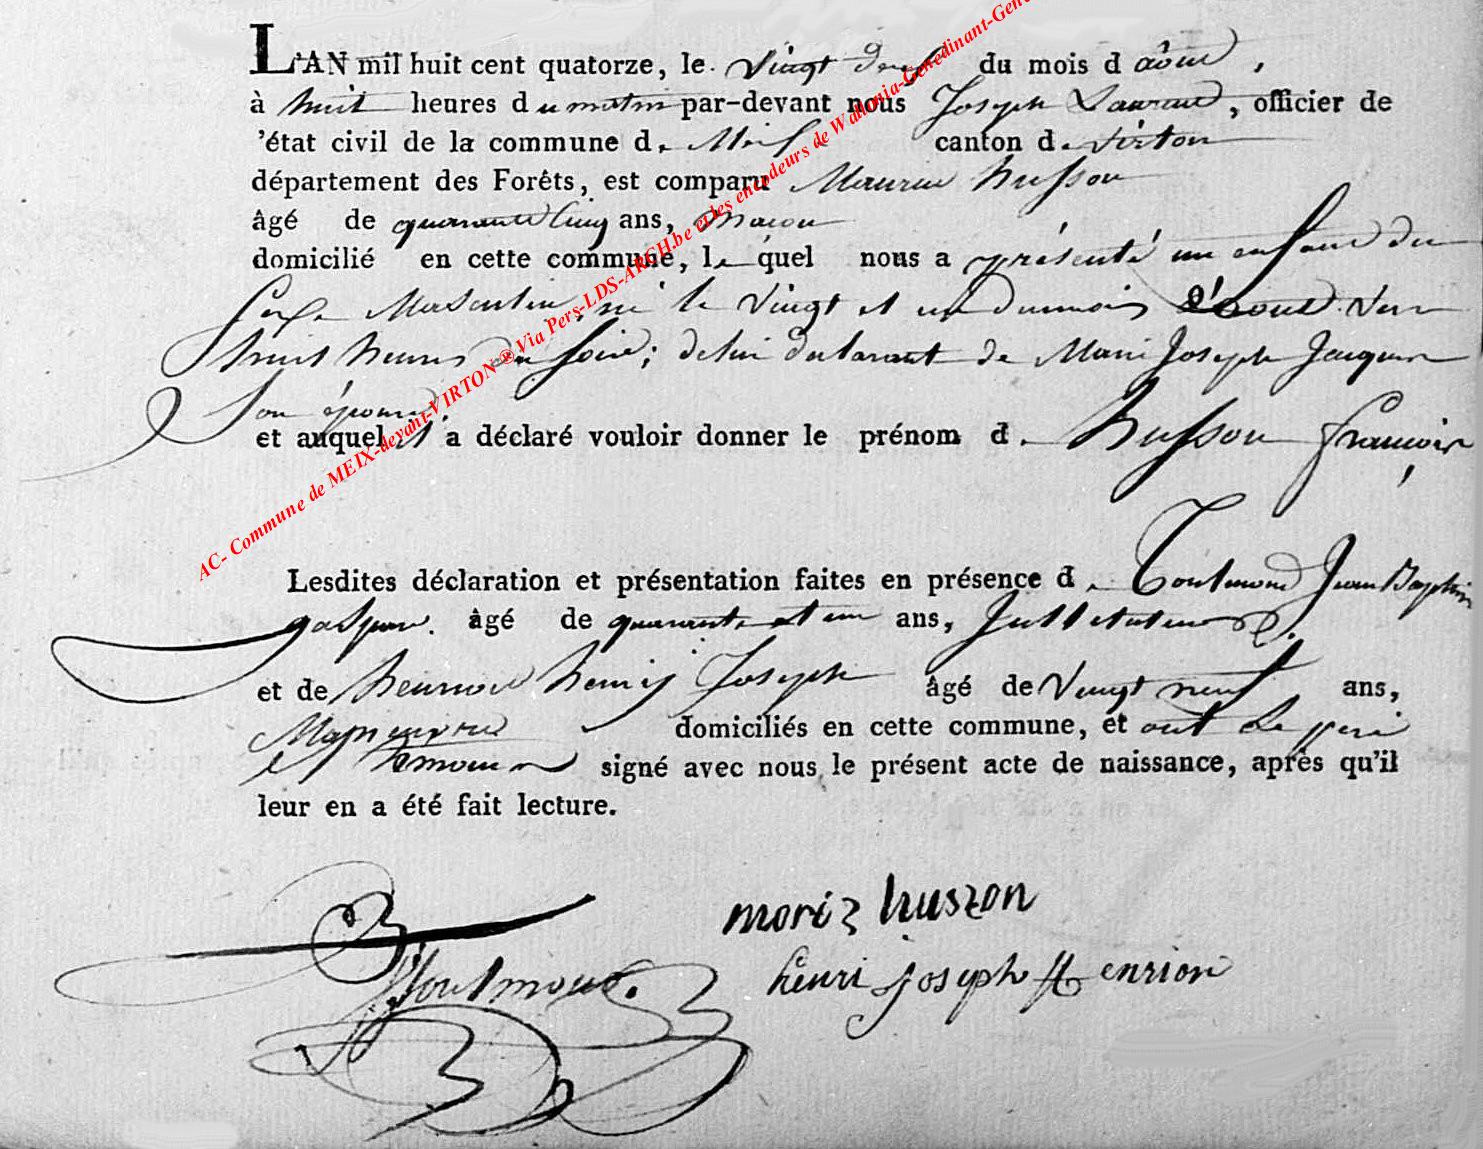 L'AN mil huit cent quatorze, le vingt deux du mois d août,
à huit heures du matin par-devant nous Joseph Laurent, officier de
'état civil de la commune de Meix canton de virton
département des Forêts, est comparu Maurice husson
âgé de quarante Cinq ans, macon
domicilié en cette commune, le quel nous a présenté un enfant du
sexe Masculin, né le vingt et un du mois d'aout vers
huit heures du soire; de lui declarant et de Marie Joseph Jacques
Son épouse
et auquel il a déclaré vouloir donner le prénom de husson françois
Lesdites déclaration et présentation faites en présence de Toutmond Jean Baptiste
gaspar. âgé de quarante et un ans, Instituteur
et de henrion henry Joseph âgé de Vingt neuf ans,
domiciliés en cette commune, et ont Le pere
et temoins signé avec nous le présent acte de naissance, après qu'il
leur en a été fait lecture.
moriz huszon
Toutmond.
henri joseph Henrion
AC- Commune de MEIX-devant-VIRTON ® Via Pers-LDS-ARCH.be et les encodeurs de Wallonia-Genedinant-Gene